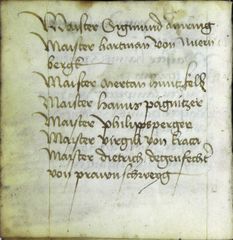 Maister Sigmund amring
Maister hartman von Nuerm
bergk
Maister mertan hunczfelt
Maister hanns pägnützer
Maister philippsperger
Maister virgili von
Maister dietrich degenfecht
von prawnschweyg